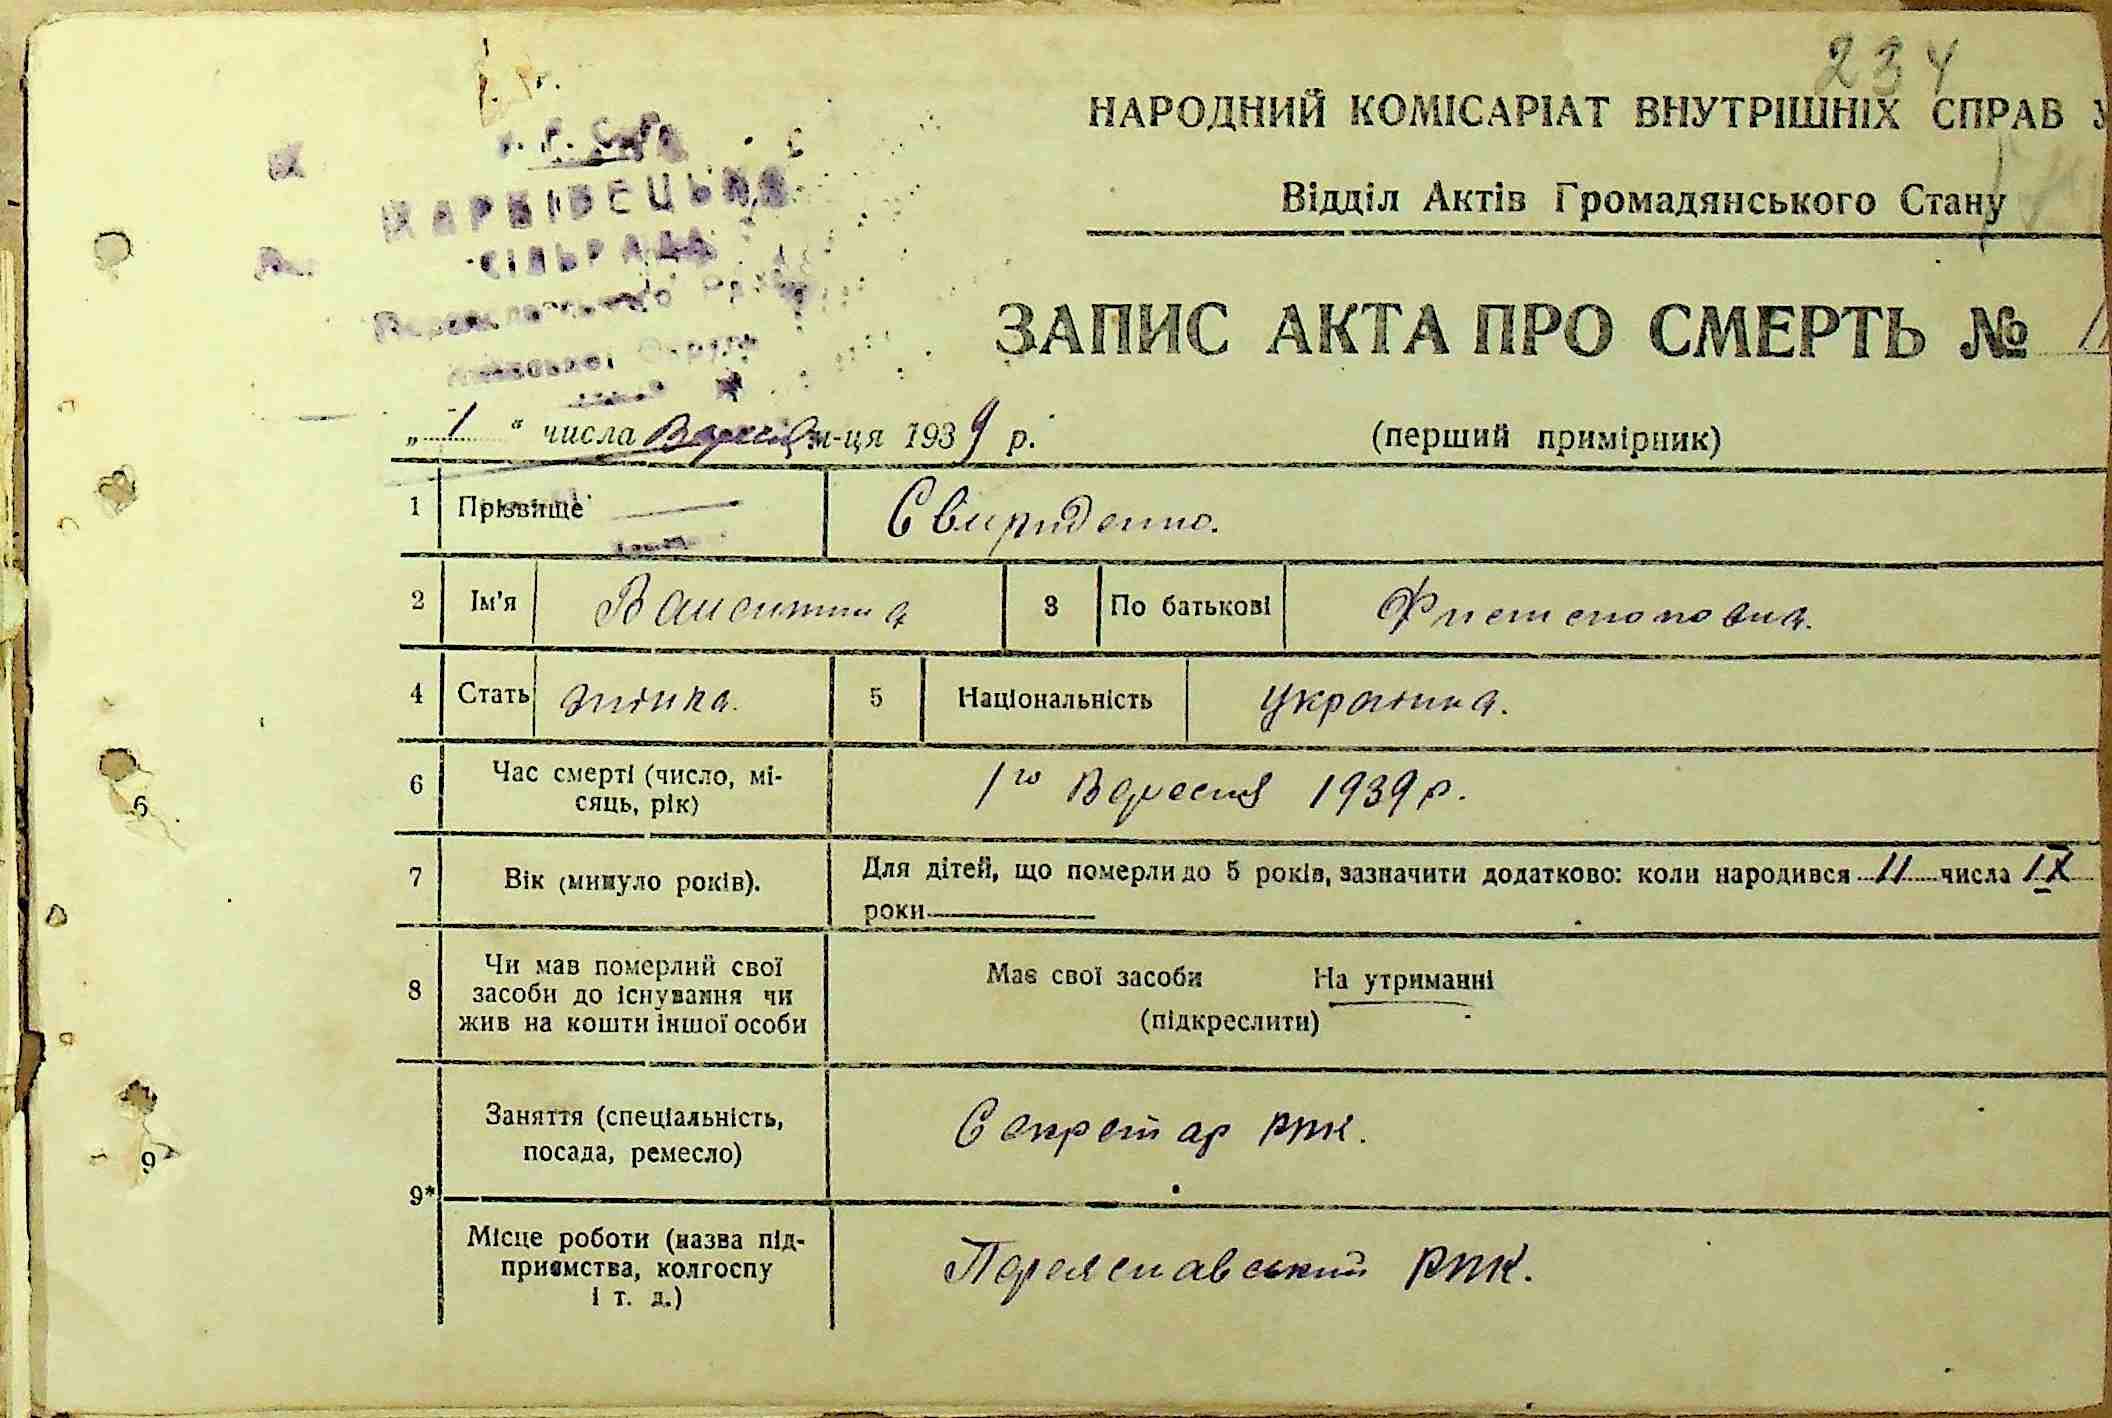 234
НАРОДНИЙ КОМІСАРІАТ ВНУТРІШНІХ СПРАВ У
Відділ Актів Громадянського Стану
ХАРКІВЕЦЬКА
СІЛЬРАДА
ЗАПИС АКТА ПРО СМЕРТЬ №
„ 1 " числа Вересня м-ця 1939 р.
(перший примірник)
1 Прізвище Свириденко.
2 Ім'я Валентина 3 По батькові
4 Стать жінка. 5 Національність Україн­ка.
6 Час смерті (число, мі-
сяць, рік) 1го Вересня 1939 р.
7 Вік (минуло років). Для дітей, що померли до 5 років, зазначити додатково: коли народився 11 числа IX
роки
8 Чи мав померлий свої
засоби до існування чи
жив на кошти іншої особи
Має свої засоби На утриманні
(підкреслити)
9* Заняття (спеціальність,
посада, ремесло) Секретар РПК.
Місце роботи (назва під-
приємства, колгоспу
і т. д.) Переяславський РПК.
6
9